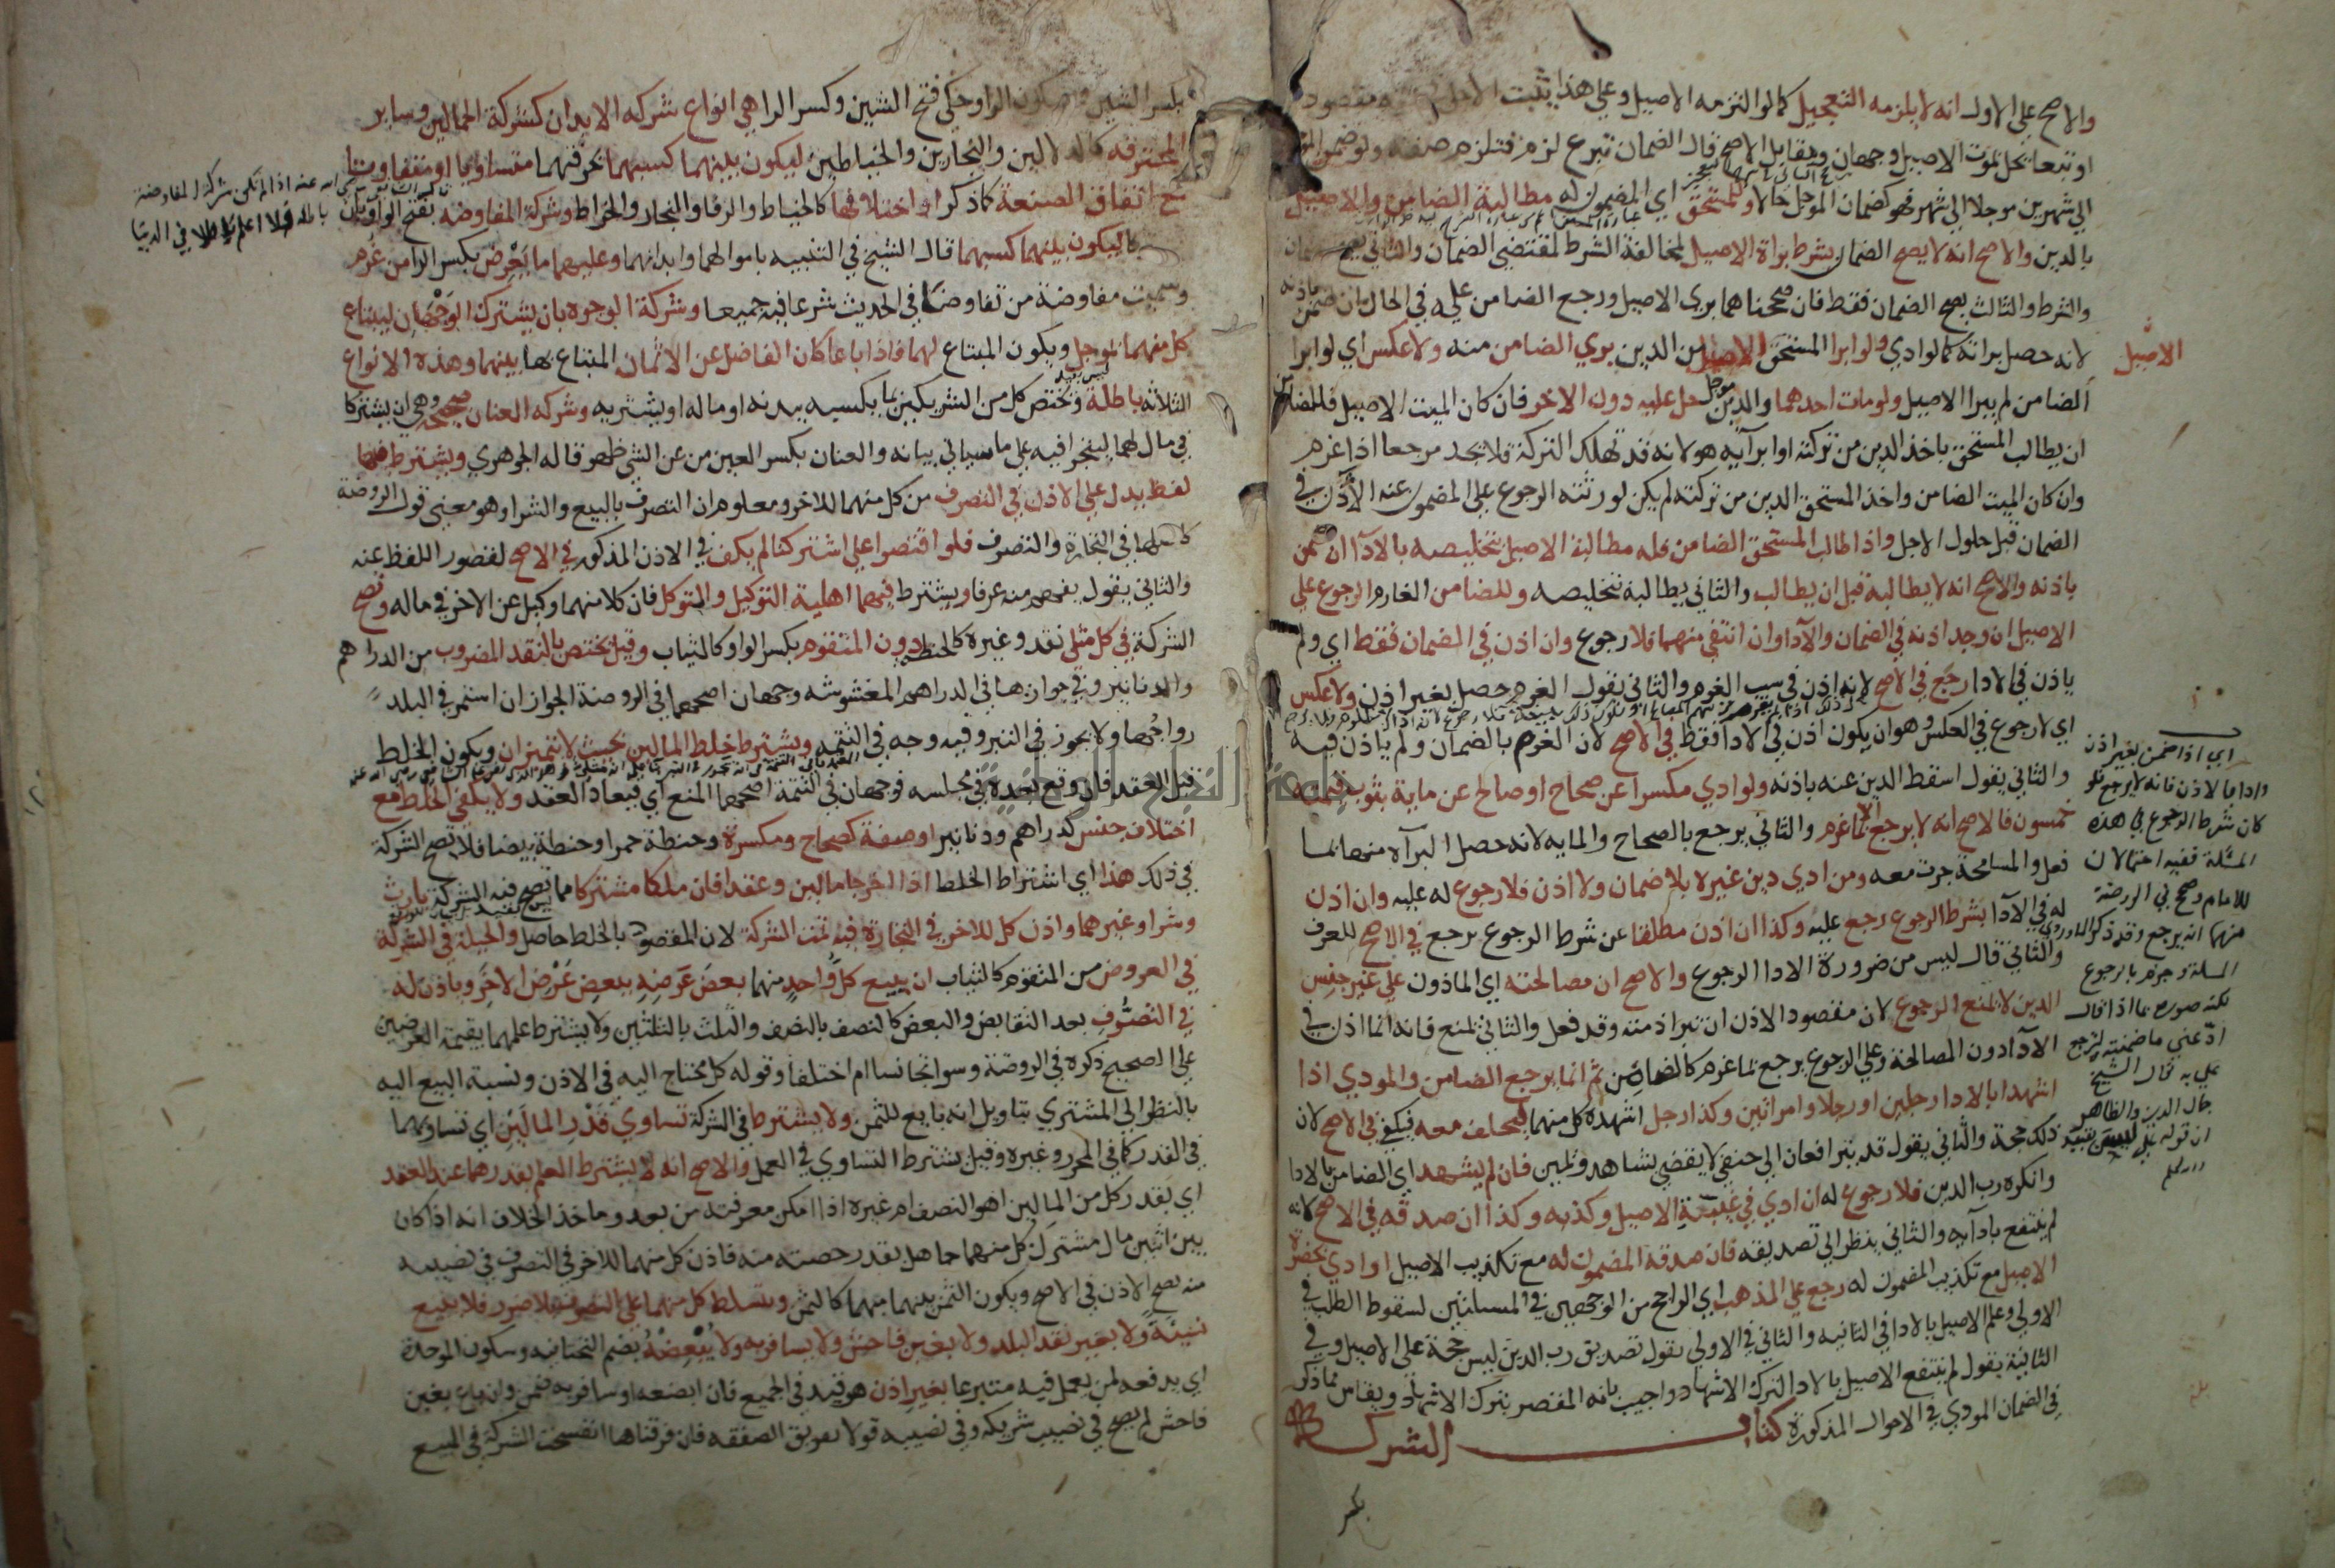 والاصح على الاول انه لا يلزمه التعجيل كما لو التزمه الاصيل وعلى هذا يثبت الاجل
او تبعا يحل بموت الاصيل وجهان ومقابل الاصح قال الضمان تبرع لزم فتلزم صفته ولو ضمن
الى شهرين مؤجلا الى شهر فهو كضمان المؤجل حالا وللمستحق اي المضمون له مطالبة الضامن والاصيل
بالدين والاصح انه لا يصح الضمان بشرط براة الاصيل لمخالفة الشرط لمقتضى الضمان والثاني يصح الضمان
والشرط والثالث يصح الضمان فقط فان صححناهما بري الاصيل ورجع الضامن عليه في الحال ان ضمن باذنه
لانه حصل براته كما لو ادي ولو ابرا المستحق الاصيل من الدين بري الضامن منه ولا عكس اي لو ابرا
الاصيل
الضامن لم يبرا الاصيل ولو مات احدهما والدين مؤجل حل عليه دون الاخر فان كان الميت الاصيل فللضامن
ان يطالب المستحق باخذ الدين من تركته او ابرآيه هو لانه قد تهلك التركة فلا يجد مرجعا اذا غرم
وان كان الميت الضامن واخذ المستحق الدين من تركته لم يكن لورثته الرجوع على المضمون عنه الآذن في
الضمان قبل حلول الاجل واذا طالب المستحق الضامن فله مطالبة الاصيل بتخليصه بالاداآ ان ضمن
باذنه والاصح انه لا يطالبه قبل ان يطالب والثاني يطالبه بتخليصه وللضامن الغارم الرجوع على
الاصيل ان وجد اذنه في الضمان والادا وان انتفى منهما فلا رجوع وان اذن في الضمان فقط اي ولم
ياذن في الادا رجع في الاصح لانه اذن في سبب الغرم والثاني يقول الغرم حصل بغير اذن ولا عكس
اي لا رجوع في العكس وهو ان يكون اذن في الادا فقط في الاصح لان الغرم بالضمان ولم ياذن فيه
والثاني يقول اسقط الدين عنه باذنه ولو ادي مكسرا عن صحاح او صالح عن ماية بثوب قيمته
خمسون فالاصح انه لا يرجع الا بما غرم والثاني يرجع بالصحاح والمايه لانه حصل البرآة منهما بما
فعل والمسامحة جرت معه ومن ادي دين غيره بلا ضمان ولا اذن فلا رجوع له عليه وان اذن
له في الادا بشرط الرجوع رجع عليه وكذا ان اذن مطلقا عن شرط الرجوع يرجع في الاصح للعرف
والثاني قال ليس من ضرورة الادا الرجوع والاصح ان مصالحته اي الماذون على غير جنس
الدين لا تمنع الرجوع لان مقصود الاذن ان تبرا ذمته وقد فعل والثاني تمنع فانه انما اذن في
الآدا دون المصالحة وعلى الرجوع يرجع بما غرم كالضامن ثم انما يرجع الضامن والمودي اذا
اشهدا بالادا رجلين او رجلا وامراتين وكذا رجل اشهده كل منهما ليحلف معه فيكفي في الاصح لان
ذلك حجة والثاني يقول قد يترافعان الى حنفي لا يقضي بشاهد ويمين فان لم يشهد اي الضامن بالادا
وانكره رب الدين فلا رجوع له ان ادي في غيبة الاصيل وكذبه وكذا ان صدقه في الاصح لانه
لم ينتفع بادآيه والثاني ينظر الى تصديقه فان صدقه المضمون له مع تكذيب الاصيل او ادي بحضرة
الاصيل مع تكذيب المضمون له رجع على المذهب اي الراجح من الوجهين في المسالتين لسقوط الطلب في
الاولى وعلم الاصيل بالادا في الثانيه والثاني في الاولى يقول تصديق رب الدين ليس حجة على الاصيل وفي
الثانية يقول لم ينتفع الاصيل بالادا لترك الاشهاد واجيب بانه المقصر بترك الاشهاد ويقاس بما ذكر
في الضمان المودي في الاحوال المذكورة كتاب الشركة
اي اذا ضمن بغير اذن
وادا بالاذن فانه لا يرجع فلو
كان شرط الرجوع في هذه
المسئلة ففيه احتمالان
للامام وصحح في الروضة
منهما انه يرجع وقد ذكر الماوردي
المسلة وجزم بالرجوع
لكنه صورها بما اذا قال
ادّ عني ما ضمنته لترجع
علي به قال الشيخ
جمال الدين والظاهر
ان قوله علي ليس بقيد
بكسر الشين وسكون الرا وحكي فتح الشين وكسر الرا هي انواع شركة الابدان كشركة الحمالين وساير
المحترفه كالدلالين والنجارين والخياطين ليكون بينهما كسبهما بحرفتهما متساويا او متفاوتا
مع اتفاق الصنعة كما ذكر او اختلافها كالخياط والرفا والنجار والخراط وشركة المفاوضه بفتح الواو بان
ليكون بينهما كسبهما قال الشيخ في التنبيه باموالهما وابدانهما وعليهما ما يعرض بكسر الرا من غرم
وسميت مفاوضة من تفاوضا في الحديث شرعا فيه جميعا وشركة الوجوه بان يشترك الوجهان ليبتاع
كل منهما بموجل ويكون المبتاع لهما فاذا باعا كان الفاضل عن الاثمان المبتاع بها بينهما وهذه الانواع
الثلاثه باطلة ويختص كل من الشريكين بما يكسبه ببدنه او ماله او يشتريه وشركه العنان صحيحة وهي ان يشتركا
في مال لهما ليتجرا فيه على ما سياتي بيانه والعنان بكسر العين من عن الشي ظهر قاله الجوهري ويشترط فيها
لفظ يدل على الاذن في التصرف من كل منهما للاخر ومعلوم ان التصرف بالبيع والشرا وهو معنى قول الروضة
في التجارة والتصرف فلو اقتصرا على اشتركنا لم يكف في الاذن المذكور في الاصح لقصور اللفظ عنه
والثاني يقول يفهم منه عرفا ويشترط فيهما اهلية التوكيل والتوكل فان كلا منهما وكيل عن الاخر في ماله وتصح
الشركة في كل مثلي نقد وغيره كالحنطة دون المتقوم بكسر الواو كالثياب وقيل تختص بالنقد المضروب من الدراهم
والدنانير وفي جوازها في الدراهم المغشوشه وجهان اصحهما في الروضة الجواز ان استمر في البلد
رواجها ولا يجوز في التبر وفيه وجه في التتمه ويشترط خلط المالين بحيث لا يتميزان ويكون الخلط
قبل العقد فان وقع بعده في مجلسه فوجهان في التتمة اصحهما المنع اي فيعاد العقد ولا يكفي الخلط مع
اختلاف جنس كدراهم ودنانير او صفة كصحاح ومكسرة وحنطة حمرا وحنطة بيضا فلا تصح الشركة
في ذلك هذا اي اشتراط الخلط اذا اخرجا مالين وعقدا فان ملكا مشتركا مما تصح فيه الشركة بارث
وشرا وغيرهما واذن كل للاخر في التجارة فيه تمت الشركة لان المقصود بالخلط حاصل والحيلة في الشركة
في العروض من المتقوم كالثياب ان يبيع كل واحد منهما بعض عرضه ببعض عرض الاخر وياذن له
في التصرف بعد التقابض والبعض كالنصف بالنصف والثلث بالثلثين ولا يشترط علمهما بقيمة العرضين
على الصحيح ذكره في الروضة وسوا تجانسا ام اختلفا وقوله كل محتاج اليه في الاذن ونسبة البيع اليه
بالنظر الى المشتري بتاويل انه بايع للثمن ولا يشترط في الشركة تساوي قدر المالين اي تساويهما
في القدر كما في المحرر وغيره وقيل يشترط التساوي في العمل والاصح انه لا يشترط العلم بقدرهما عند العقد
اي بقدر كل من المالين اهو النصف ام غيره اذا امكن معرفته من بعد وماخذ الخلاف انه اذا كان
بين اثنين مال مشترك كل منهما جاهل بقدر حصته منه فاذن كل منهما للاخر في التصرف في نصيبه
منه يصح الاذن في الاصح ويكون الثمن بينهما مبهما كالمثمن ويتسلط كل منهما على التصرف بلا ضرر فلا يبيع
نسيئة ولا بغير نقد البلد ولا بغبن فاحش ولا يسافر به ولا يبضعه بضم التحتانيه وسكون الموحدة
اي يدفعه لمن يعمل فيه متبرعا بغير اذن هو قيد في الجميع فان ابضعه او سافر به ضمن وان باع بغبن
فاحش لم يصح في نصيب شريكه وفي نصيبه قولا تفريق الصفقه فان فرقناها انفسخت الشركة في المبيع
جامعة النجاح الوطنية